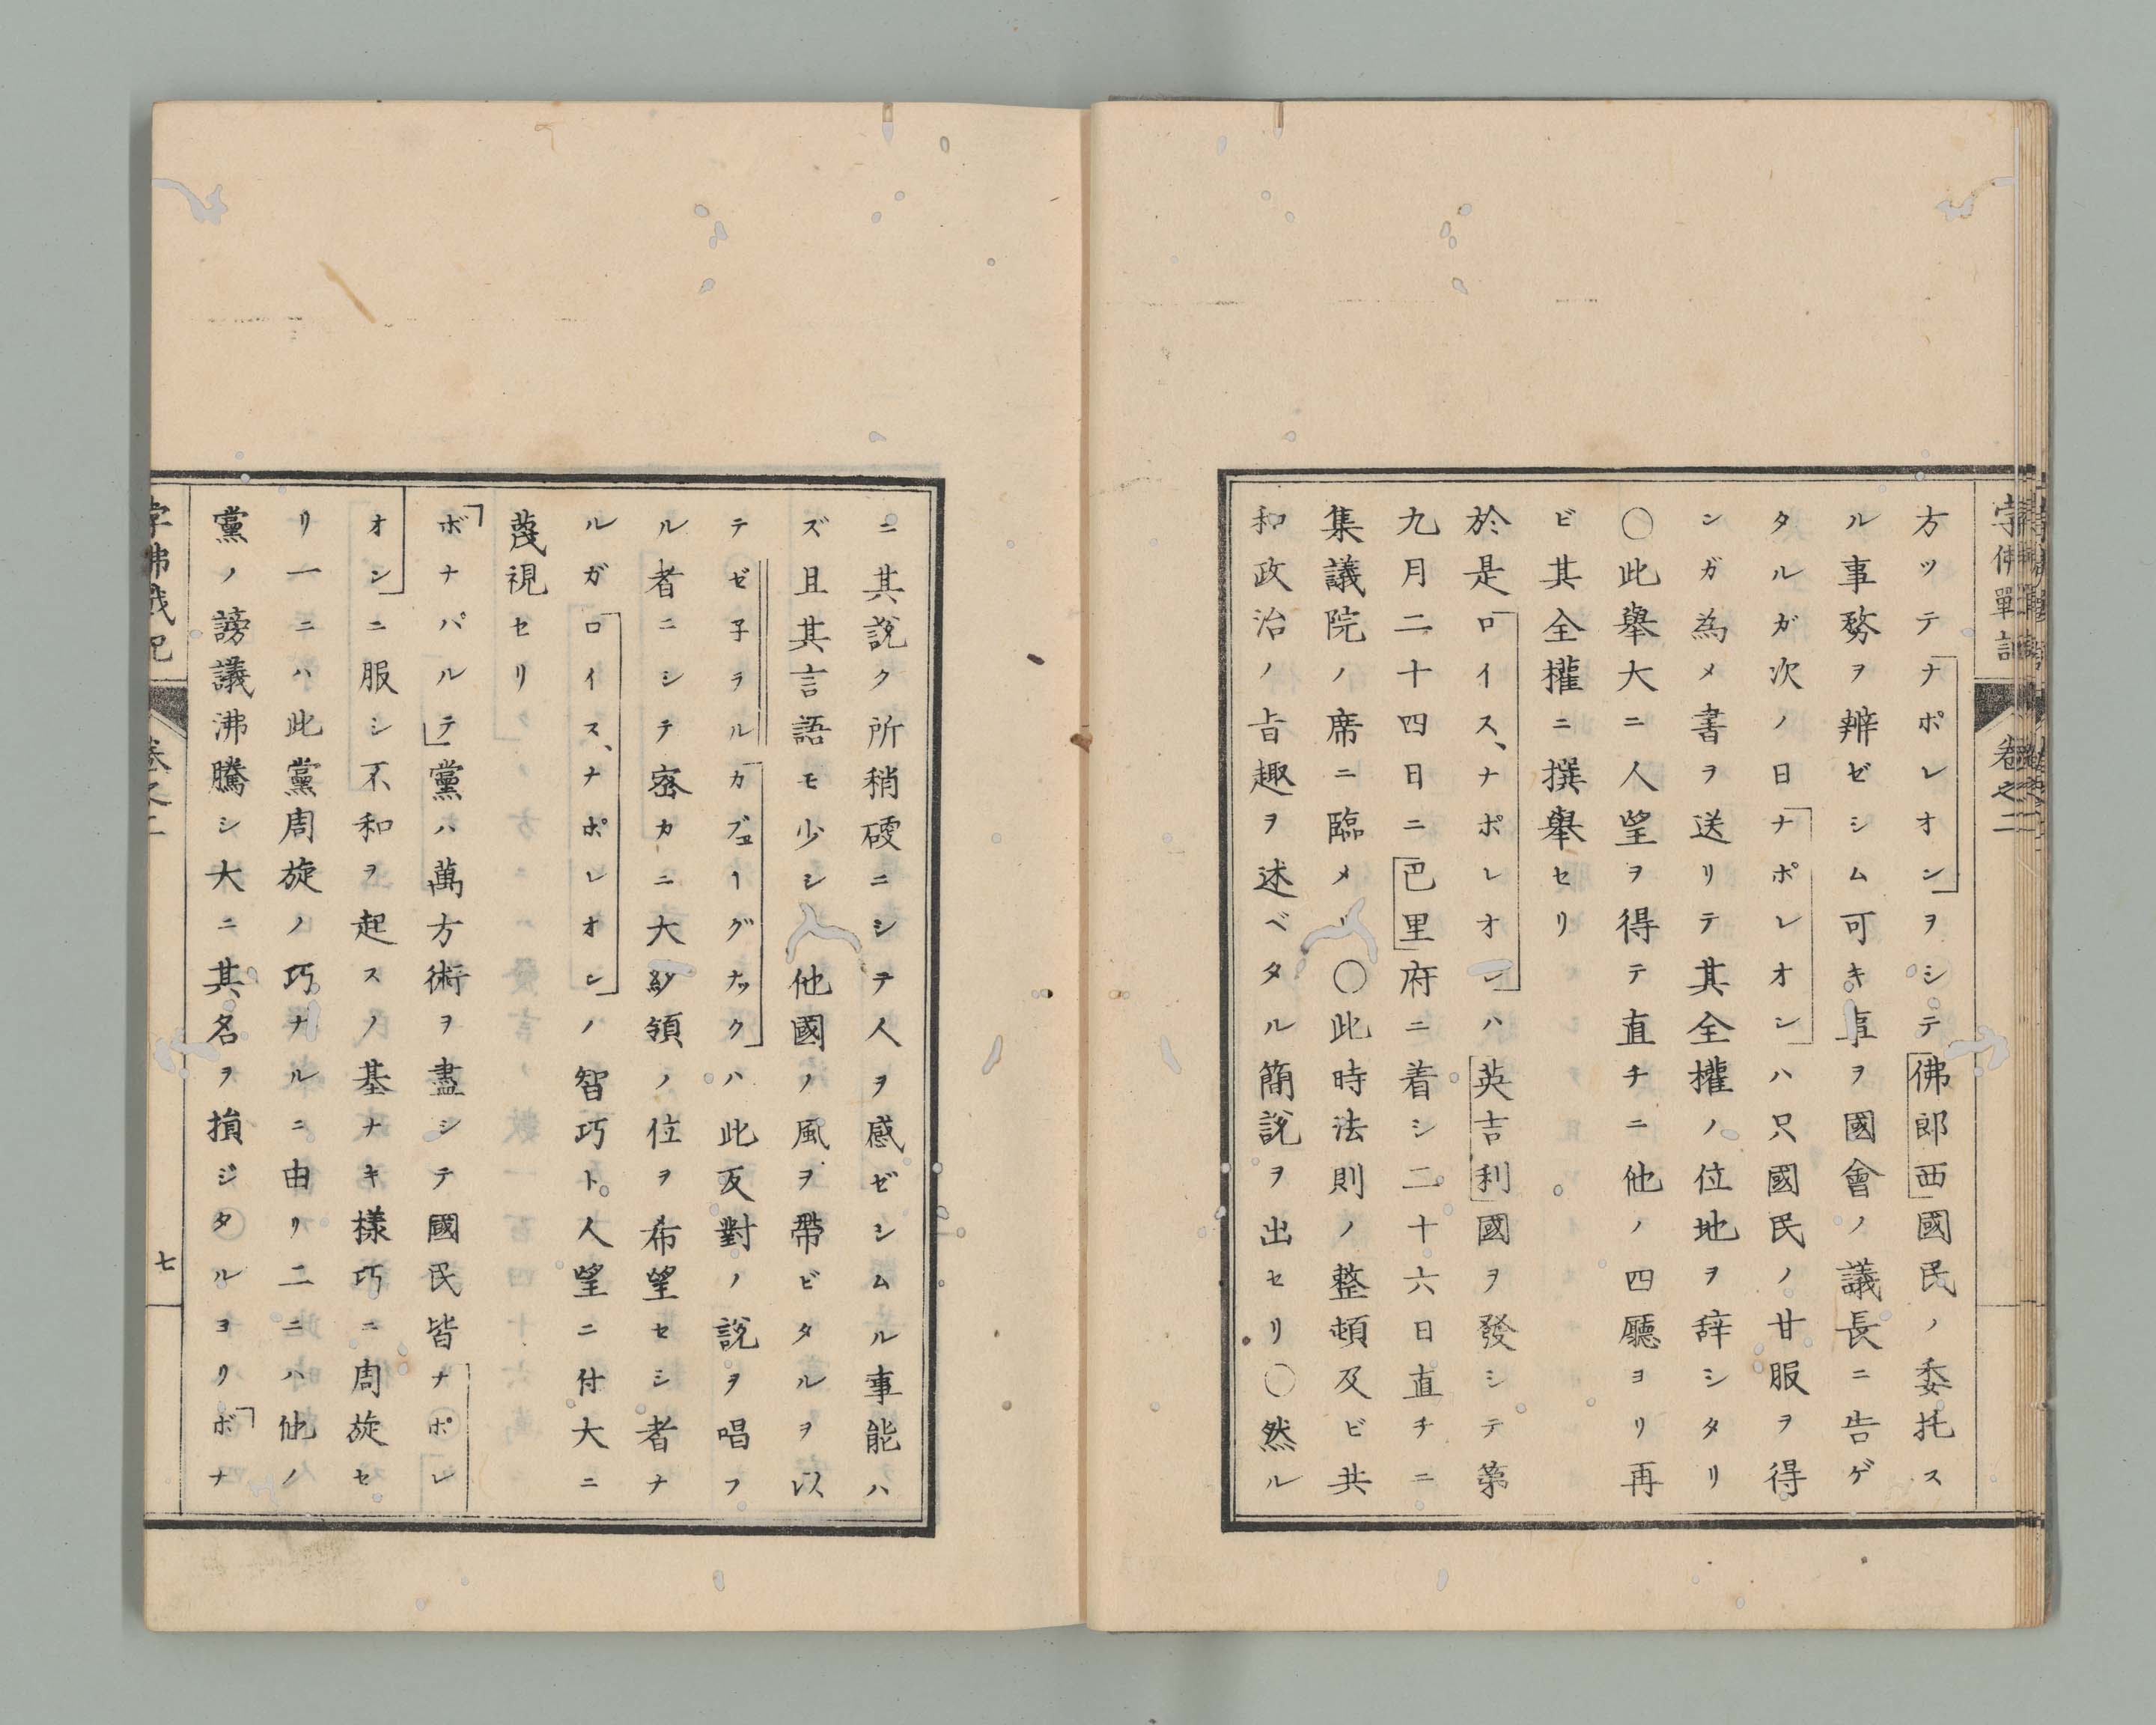 字佛戰記
卷之二
方ツテナポレオンヲシテ佛郎西國民ノ委托ス
ル事務ヲ辨ゼシム可キ事ヲ國會ノ議長ニ告ゲ
タルガ次ノ日ナポレオンハ只國民ノ甘服ヲ得
ンガ為メ書ヲ送リテ其全權ノ位地ヲ辞シタリ
〇此舉大ニ人望ヲ得テ直チニ他ノ四廳ヨリ再
ビ其全權ニ撰舉セリ
於是ロイス、ナポレオンハ英吉利國ヲ發シテ第
九月二十四日ニ巴里府ニ着シ二十六日直チニ
集議院ノ席ニ臨メリ〇此時法則ノ整頓及ビ共
和政治ノ旨趣ヲ述ベタル簡說ヲ出セリ〇然ル
ニ其說ク所稍硬ニシテ人ヲ感ゼシムル事能ハ
ズ且其言語モ少シク他國ノ風ヲ帶ビタルヲ以
テゼ子ヲルカヴェーグナックハ此反對ノ說ヲ唱フ
ル者ニシテ密カニ大統領ノ位ヲ希望セシ者ナ
ルガロイス、ナポレオンノ智巧ト人望ニ付大ニ
蔑視セリ
ボナパルテ黨ハ萬方術ヲ盡シテ國民皆ナポレ
オンニ服シ不和ヲ起スノ基ナキ樣巧ニ周旋セ
リ一ニハ此黨周旋ノ巧ナルニ由リ二ニハ他ノ
黨ノ謗議沸騰シ大ニ其名ヲ損ジタルヨリボナ
字佛戰記
卷之二
七